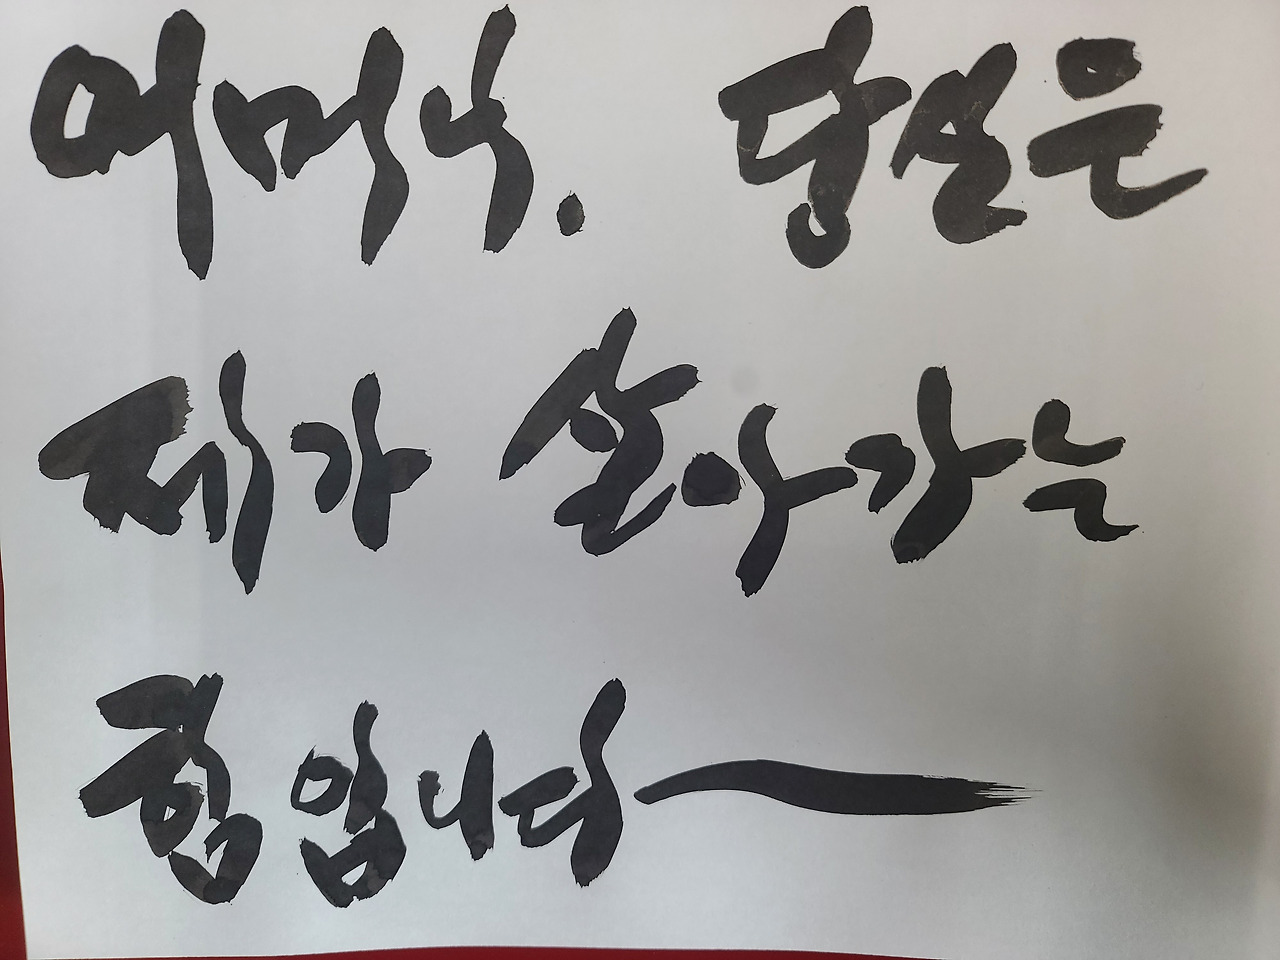 어머니. 당신은
제가 살아가는
힘입니다